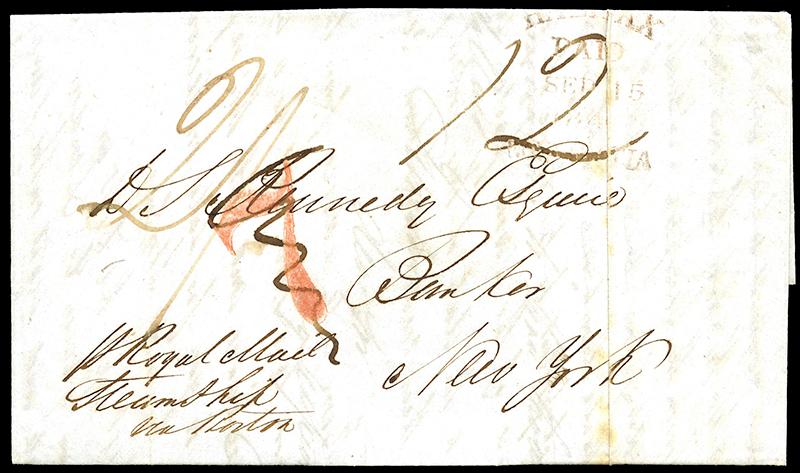 PAID
SEP 15
12
D. S. Kennedy Esquire
Banker
New York
p Royal Mail
Steamship
via Boston